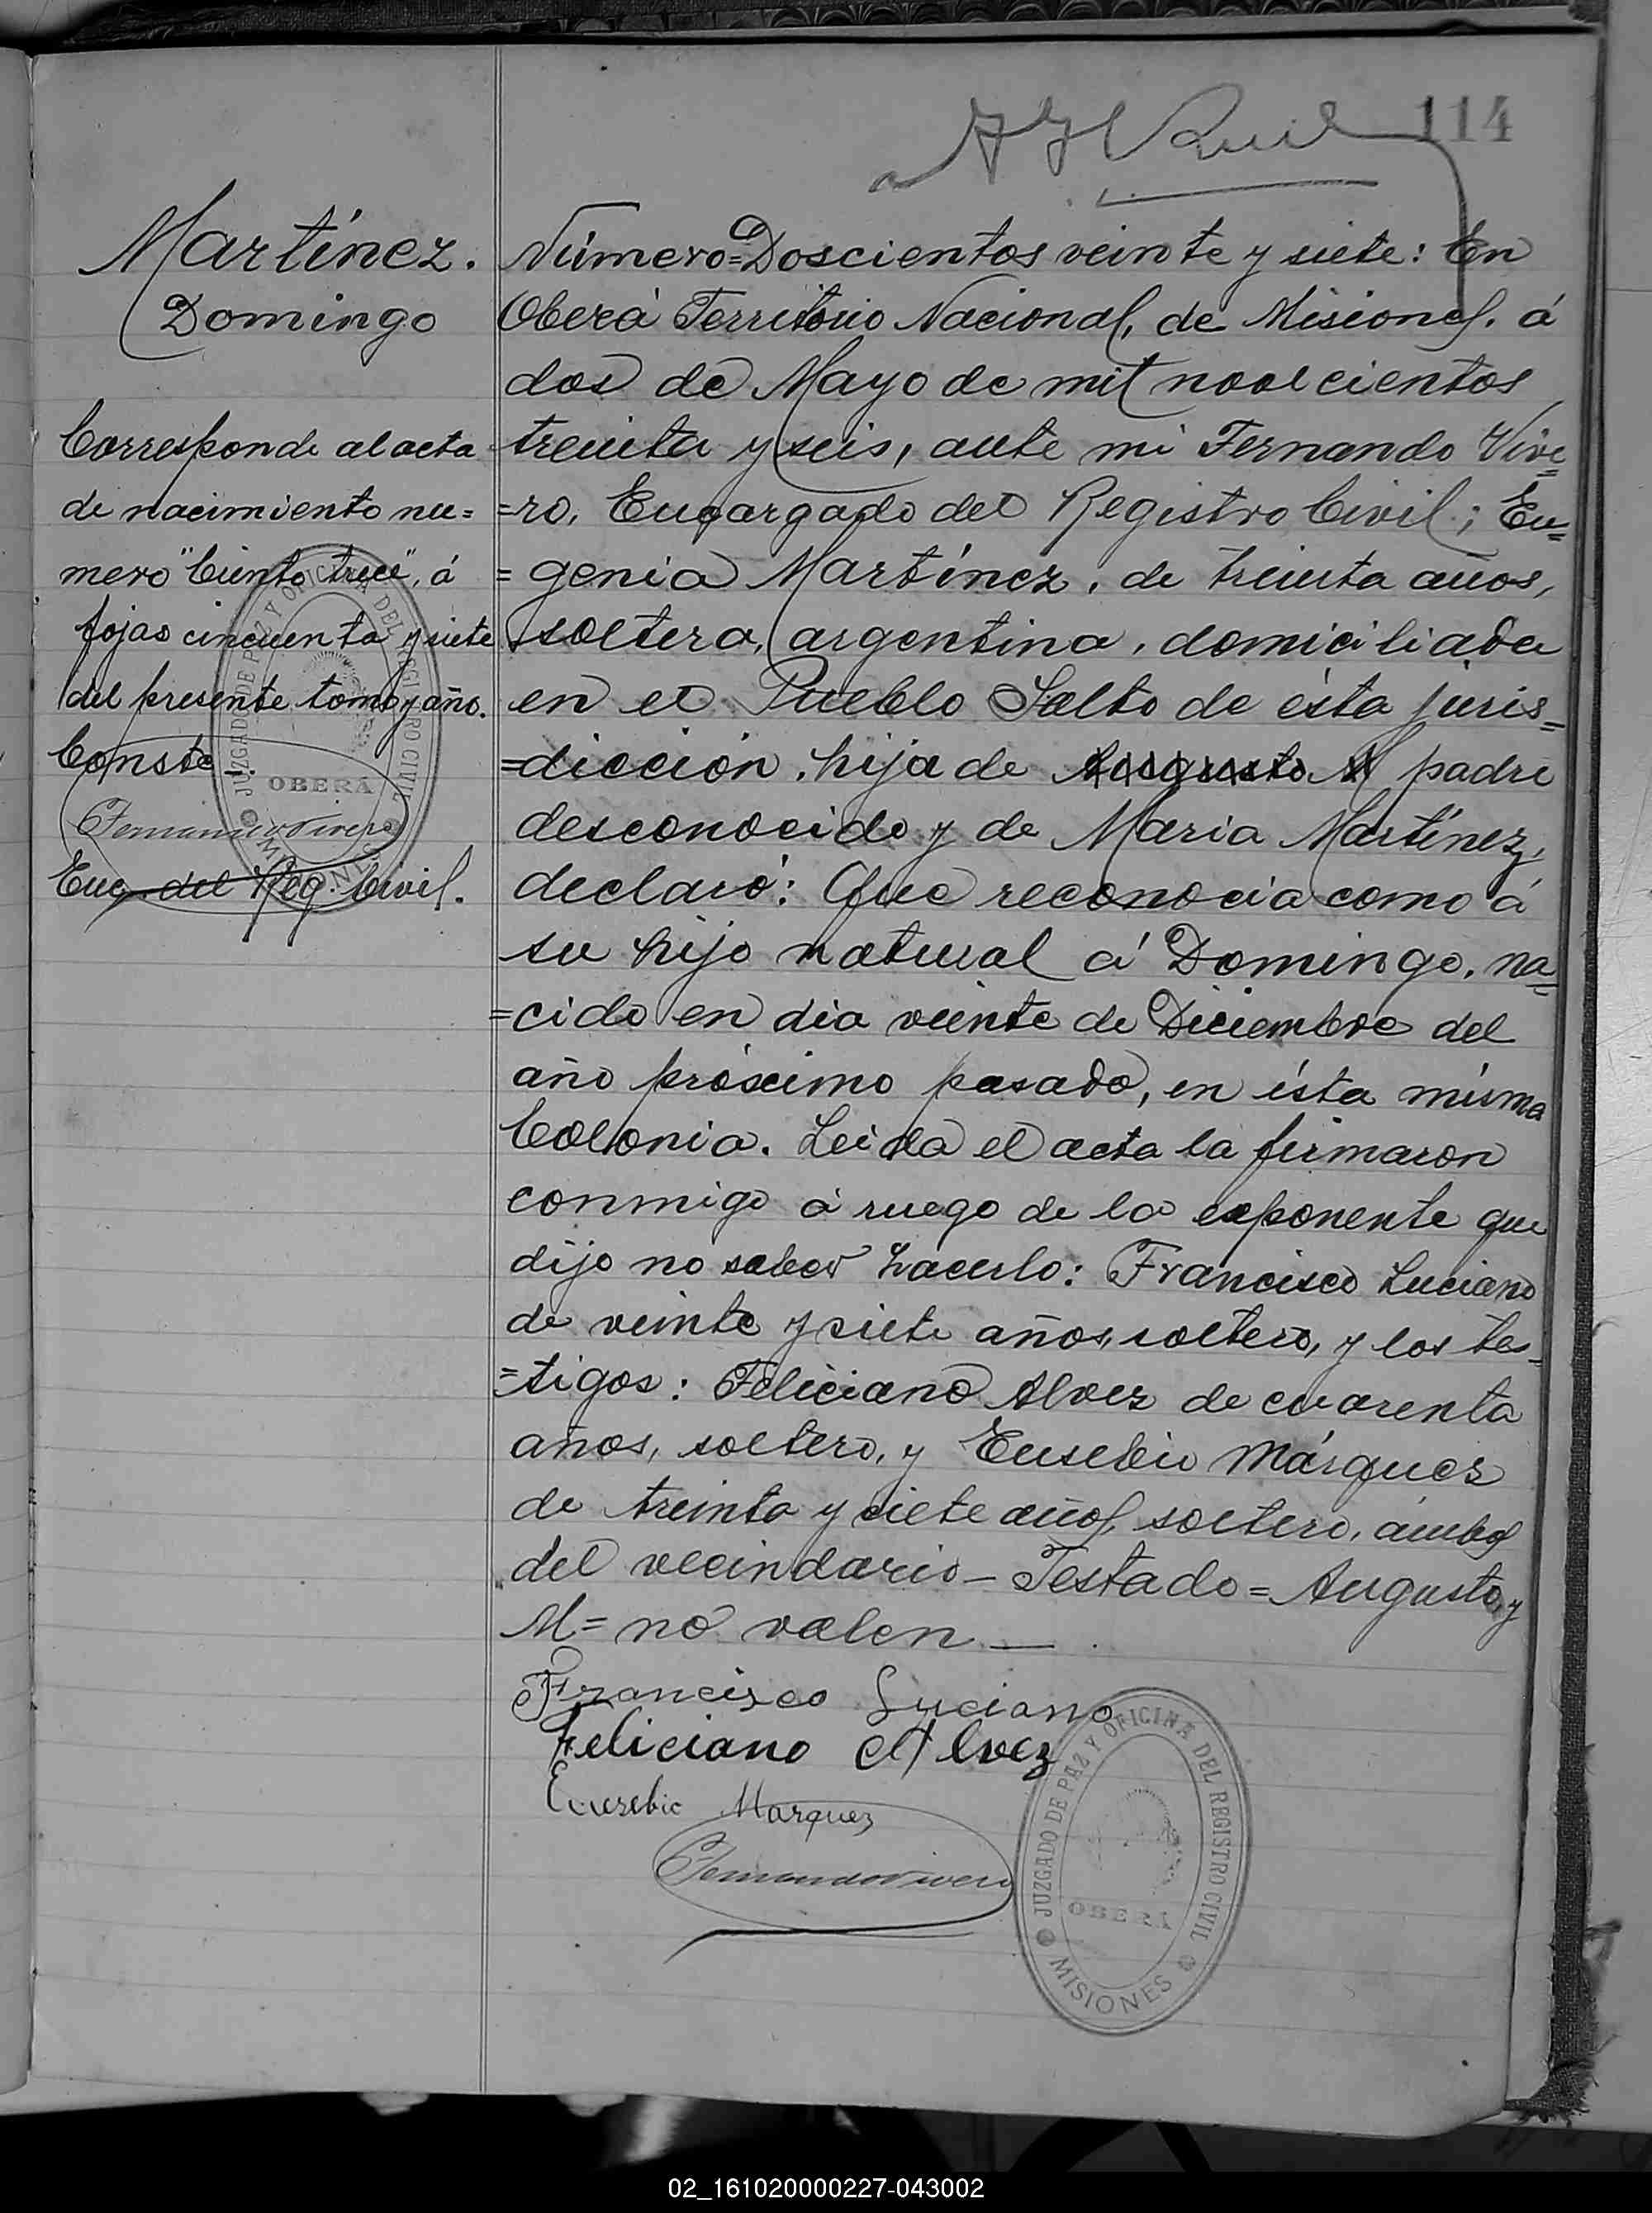 114
Martínez.
Domingo
Corresponde al acta
de nacimiento nu=
mero "Ciento trece", á
fojas cincuenta y siete
del presente tomo y año.
Conste
Fernando Vivero
Enc. del Reg. Civil.
JUZGADO DE PAZ Y OFICINA DEL REGISTRO CIVIL
OBERÁ
MISIONES
Número=Doscientos veinte y siete: En
Oberá Territorio Nacional, de Misiones. á
dos de Mayo de mil novecientos
treinta y seis, ante mi Fernando Vive=
=ro, Encargado del Registro Civil; Eu=
=genia Martínez, de treinta años,
soltera, argentina, domiciliada
en el Pueblo Salto de ésta juris=
=dicción, hija de Augusto M padre
desconocido y de Maria Martínez,
declaró: Que reconocia como á
su hijo natural á Domingo, na=
=cido en dia veinte de Diciembre del
año próximo pasado, en ésta misma
Colonia. Leida el acta la firmaron
conmigo á ruego de la exponente que
dijo no saber hacerlo: Francisco Luciano
de veinte y siete años, soltero, y los tes=
=tigos: Feliciano Alvez de cuarenta
años, soltero, y Eusebio Márquez
de treinta y siete años, soltero, ámbos
del vecindario—Testado=Augusto, y
M=no valen—.
Francisco Luciano
Feliciano Alvez
Eusebio Marquez
Fernando Vivero
JUZGADO DE PAZ Y OFICINA DEL REGISTRO CIVIL
OBERÁ
MISIONES
02_161020000227-043002